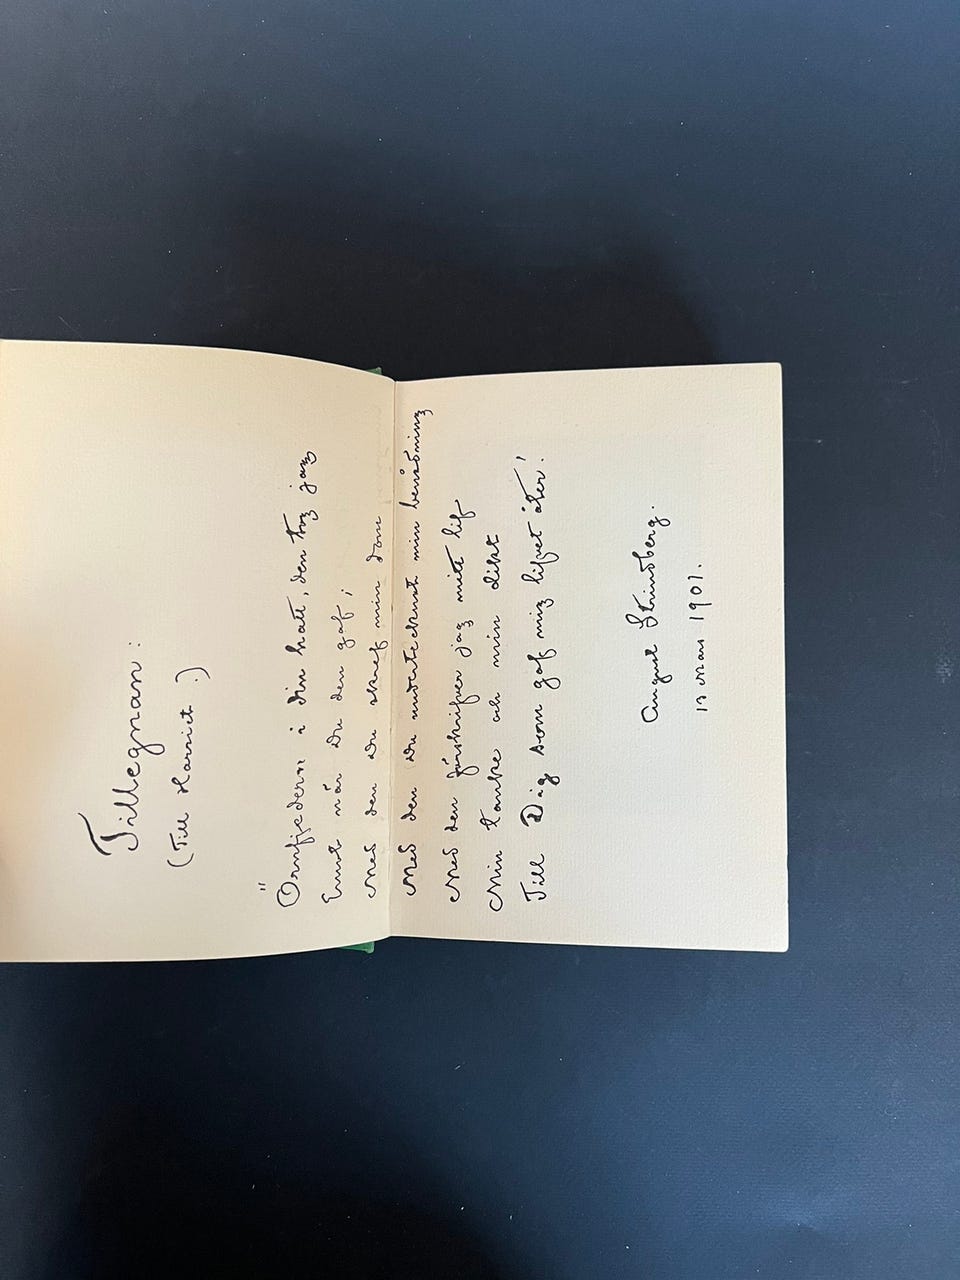 Tillegnan:
(Till Harriet.)
"Örnfjedern i din hatt, den tog jag
Emot när Du den gaf;
Med den Du skref min dom
Med den Du undertecknat min benådning
Med den förskrifver jag mitt lif
Min tanke och min dikt
Till Dig som gaf mig lifvet åter!
August Strindberg.
13 Mars 1901.